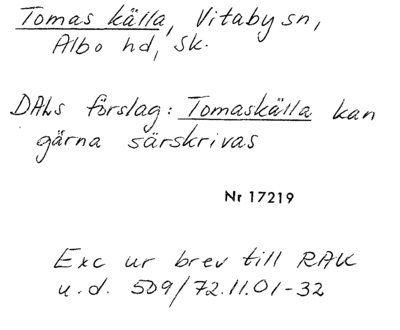 Tomas källa, Vitaby sn,
Albo hd, Sk.
DALs förslag: Tomaskälla kan
gärna särskrivas
Nr 17219
Exc ur brev till RAK
u.d. 509/72.11.01-32